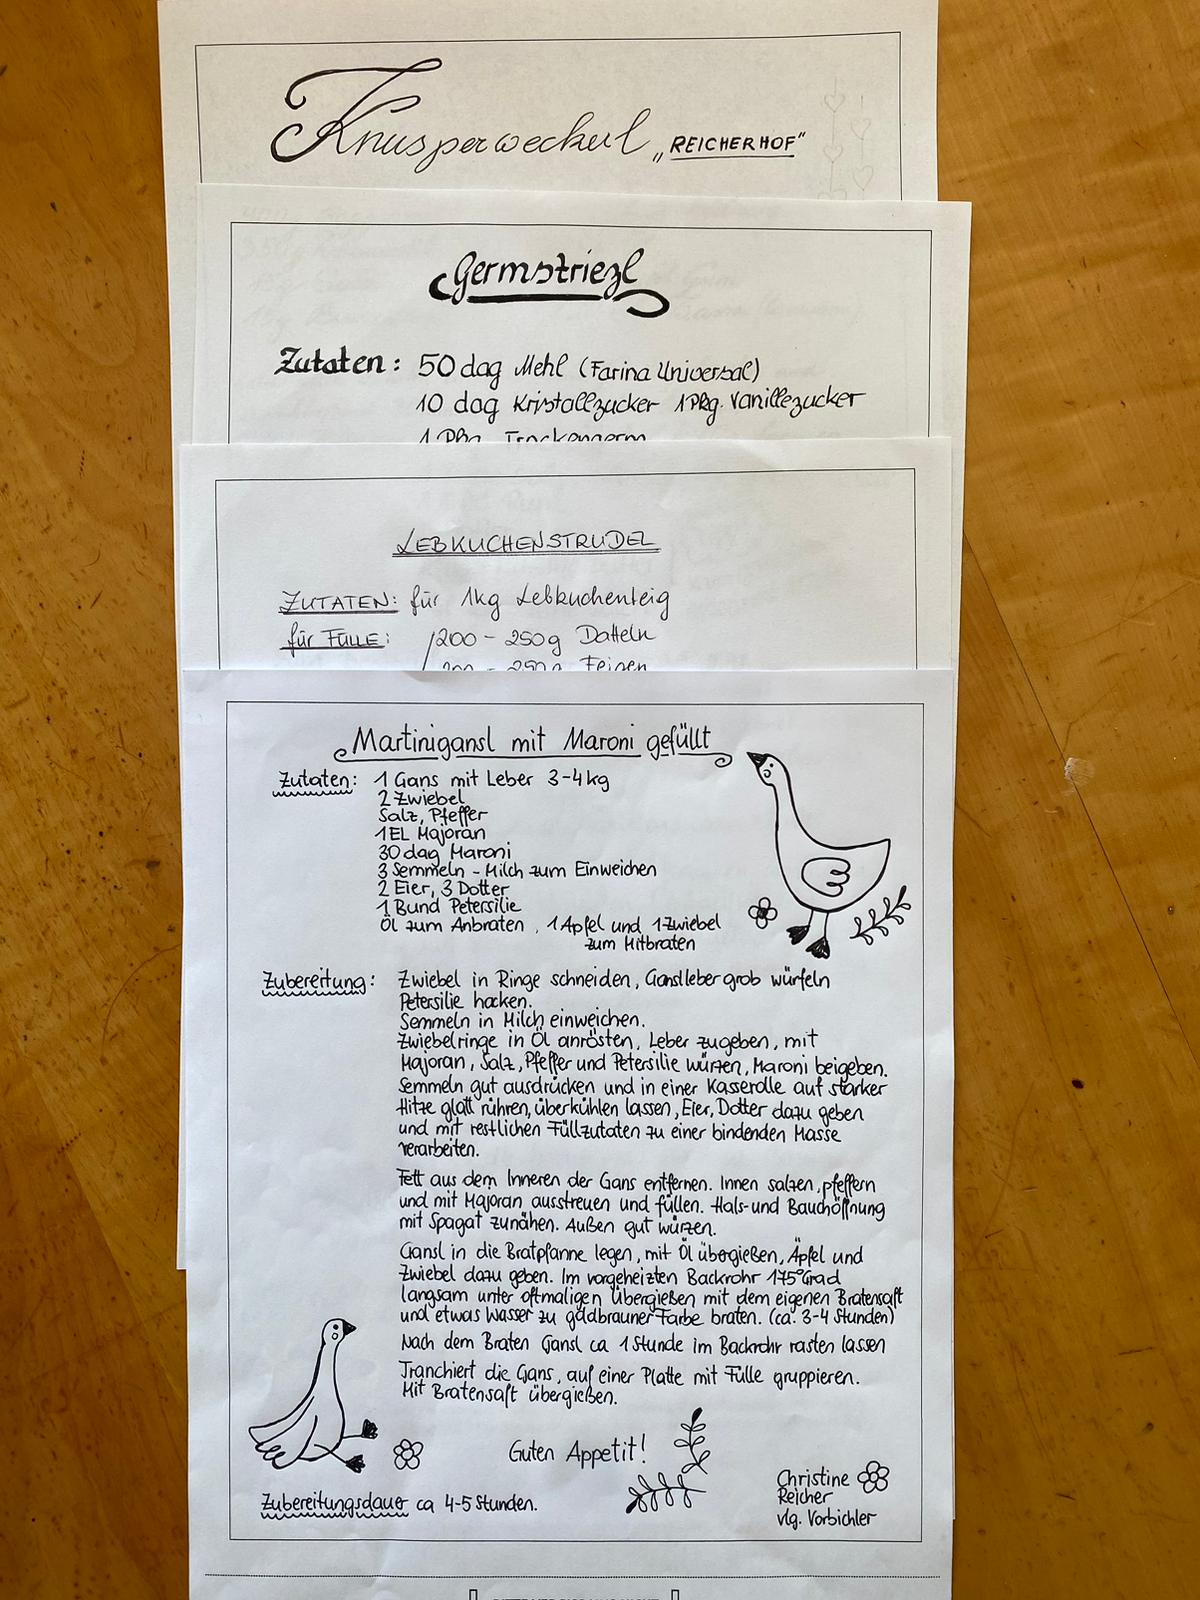 Knusperweckerl „REICHERHOF"
Germstriezl
Zutaten: 50 dag Mehl (Farina Universal)
10 dag Kristallzucker 1 Pkg. Vanillezucker
1 Pkg. Trockengerm
LEBKUCHENSTRUDEL
ZUTATEN: für 1kg Lebkuchenteig
für FÜLLE: 200 - 250g Datteln
200 - 250g Feigen
Martinigansl mit Maroni gefüllt
Zutaten: 1 Gans mit Leber 3-4 kg
2 Zwiebel
Salz, Pfeffer
1 EL Majoran
30 dag Maroni
3 Semmeln - Milch zum Einweichen
2 Eier, 3 Dotter
1 Bund Petersilie
Öl zum Anbraten, 1 Apfel und 1 Zwiebel
zum Mitbraten
Zubereitung: Zwiebel in Ringe schneiden, Ganslleber grob würfeln
Petersilie hacken.
Semmeln in Milch einweichen.
Zwiebelringe in Öl anrösten, Leber zugeben, mit
Majoran, Salz, Pfeffer und Petersilie würzen, Maroni beigeben.
Semmeln gut ausdrücken und in einer Kasserolle auf starker
Hitze glatt rühren, überkühlen lassen, Eier, Dotter dazu geben
und mit restlichen Füllzutaten zu einer bindenden Masse
verarbeiten.
Fett aus dem Inneren der Gans entfernen. Innen salzen, pfeffern
und mit Majoran ausstreuen und füllen. Hals- und Bauchöffnung
mit Spagat zunähen. Außen gut würzen.
Gansl in die Bratpfanne legen, mit Öl übergießen, Äpfel und
Zwiebel dazu geben. Im vorgeheizten Backrohr 175° Grad
langsam unter oftmaligen Übergießen mit dem eigenen Bratensaft
und etwas Wasser zu goldbrauner Farbe braten. (ca. 3-4 Stunden)
Nach dem Braten Gansl ca 1 Stunde im Backrohr rasten lassen
Tranchiert die Gans, auf einer Platte mit Fülle gruppieren.
Mit Bratensaft übergießen.
Guten Appetit!
Zubereitungsdauer ca 4-5 Stunden.
Christine
Reicher
vlg. Vorbichler